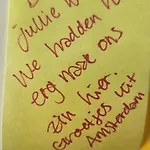 jullie w
We hadden h
erg naar ons
zin hier.
Groetjes uit
Amsterdam